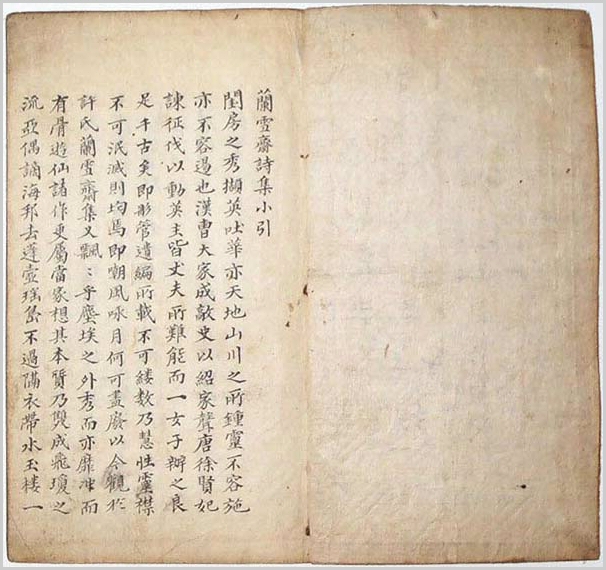 蘭雪齋詩集小引
閨房之秀擷英吐華亦天地山川之所鍾靈不容施
亦不容遏也漢曹大家成敲史以紹家聲唐徐賢妃
諫征伐以動英主皆丈夫所難能而一女子辦之良
足千古矣即彤管遺編所載不可縷數乃慧性靈襟
不可泯滅則均焉即嘲風咏月何可盡廢以今觀於
許氏蘭雪齋集又飄〻乎塵埃之外秀而亦靡冲而
有骨遊仙諸作更屬當家想其本質乃雙成飛瓊之
流亞偶謫海邦去蓬壺瑤島不過隔衣帶水玉樓一